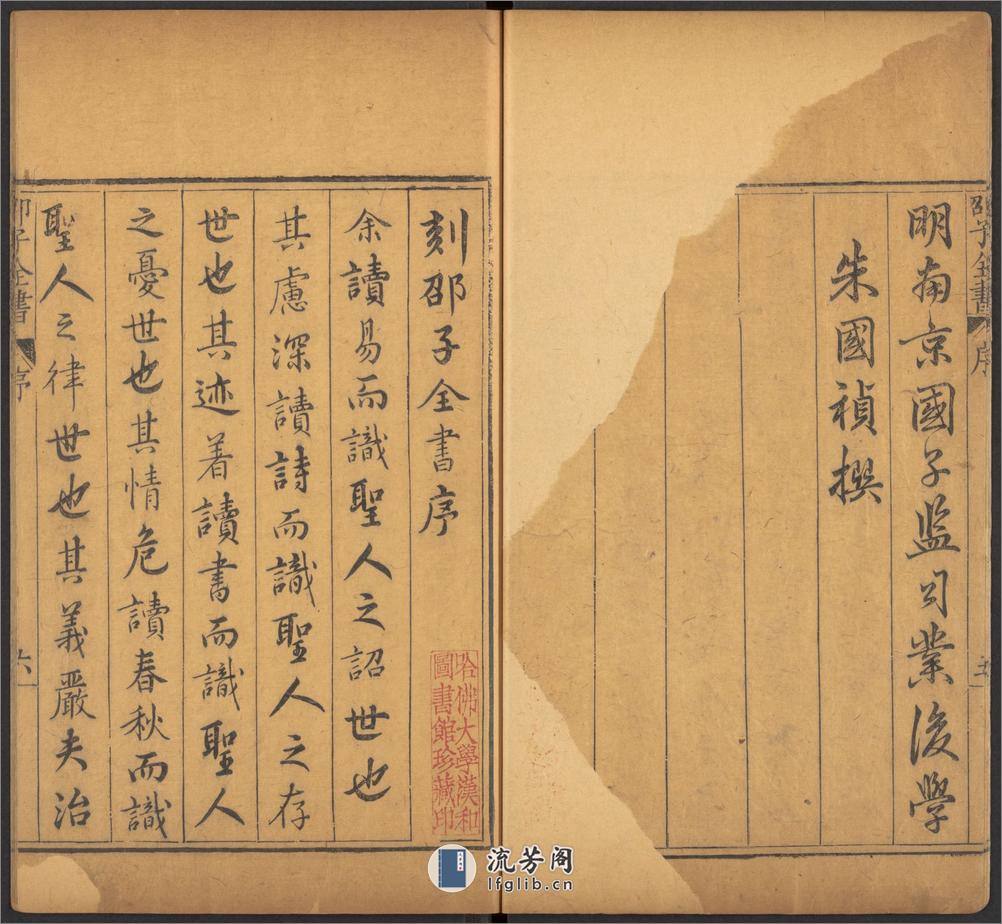 明南京國子監司業後學
朱國禎撰
邵子全書
序
刻邵子全書序
余讀易而識聖人之詔世也
其慮深讀詩而識聖人之存
世也其迹着讀書而識聖人
之憂世也其情危讀春秋而識
聖人之律世也其義嚴夫治
子全書
序
六
哈佛大學漢和
圖書館珍藏印
流芳阁
lfglib.cn